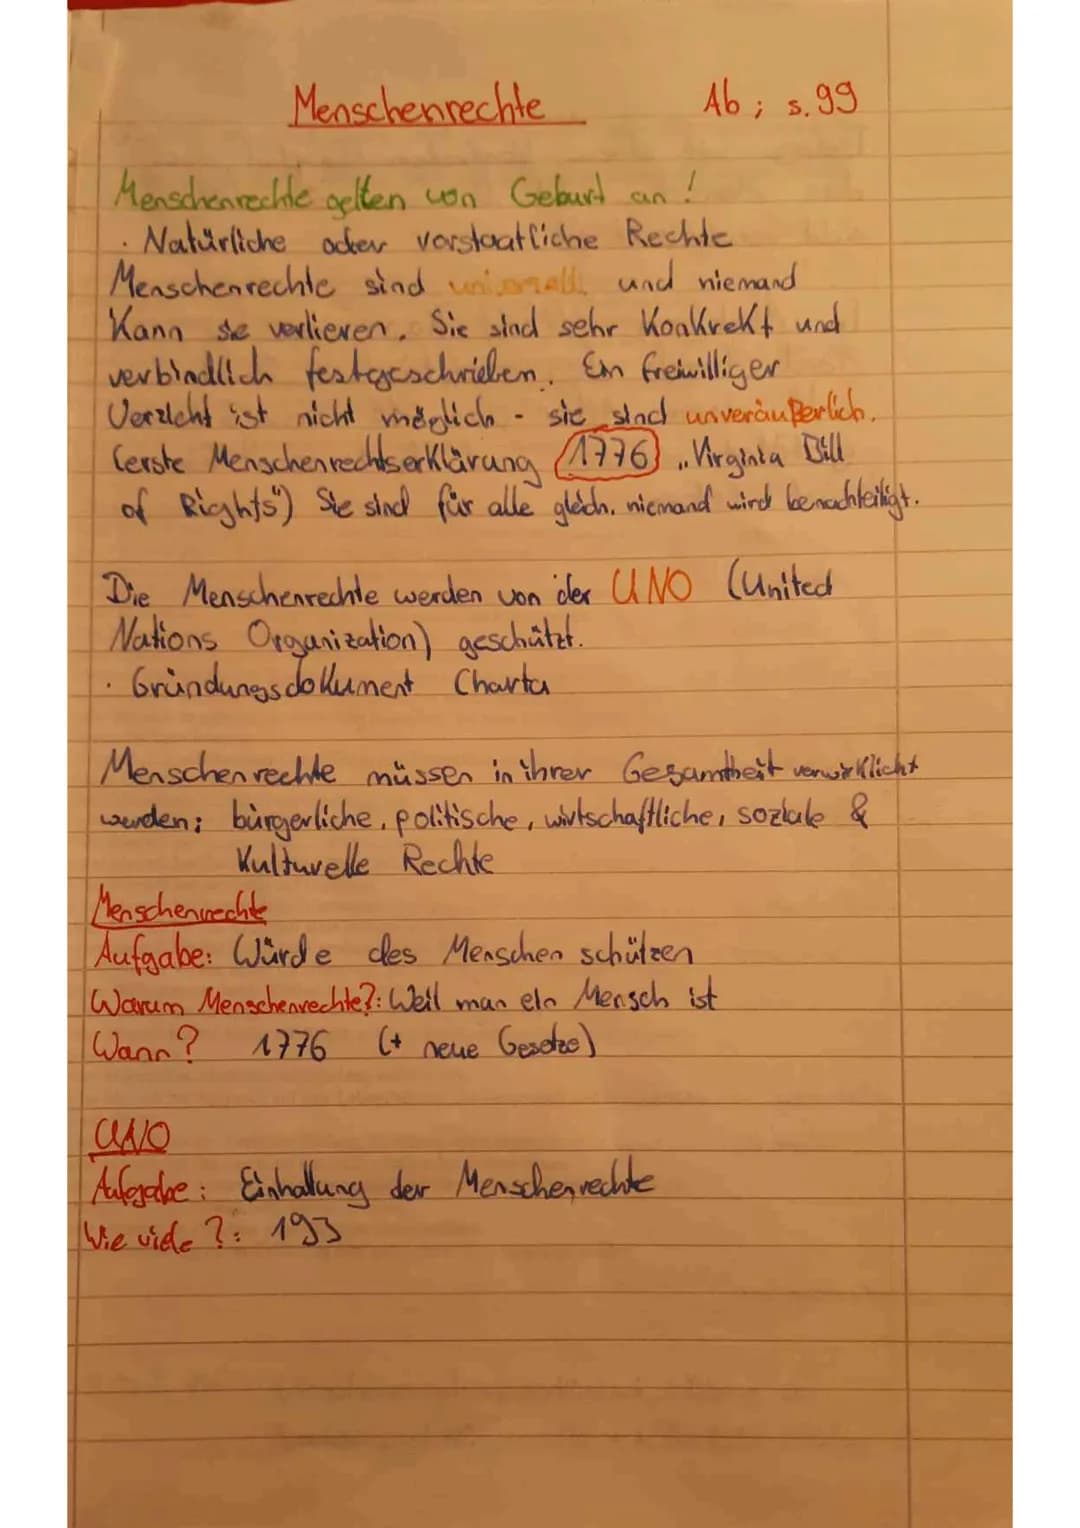 Menschenrechte Ab; s. 99
Menschenrechte gelten von Geburt an!
· Natürliche oder vorstaatliche Rechte
Menschenrechte sind universell und niemand
Kann sie verlieren. Sie sind sehr Konkrekt und
verbindlich festgeschrieben. Ein freiwilliger
Verzicht ist nicht möglich - sie sind unveräußerlich.
(erste Menschenrechtserklärung 1776 „Virginia Bill
of Rights") Sie sind für alle gleich. niemand wird benachteiligt.
Die Menschenrechte werden von der UNO (United
Nations Organization) geschützt.
· Gründungsdokument Charta
Menschenrechte müssen in ihrer Gesamtheit verwirklicht
werden: bürgerliche, politische, wirtschaftliche, soziale &
Kulturelle Rechte
Menschenrechte
Aufgabe: Würde des Menschen schützen
Warum Menschenrechte?: Weil man ein Mensch ist
Wann? 1776 (+ neue Gesetze)
UNO
Aufgabe: Einhaltung der Menschenrechte
Wie viele?: 193